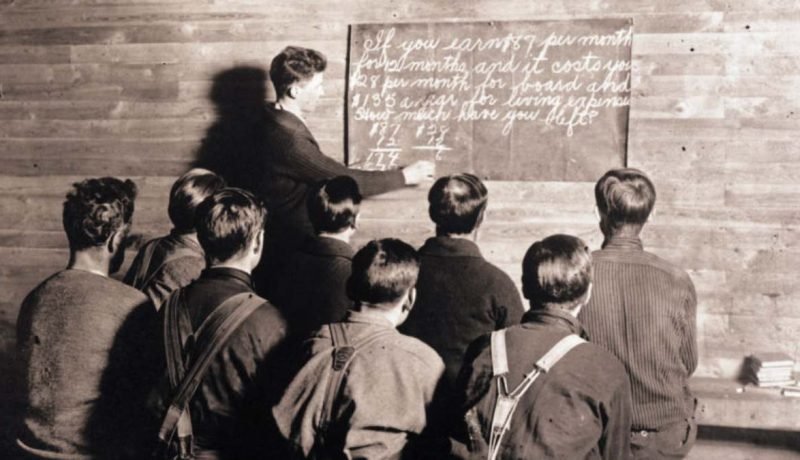 If you earn $87 per month
for 12 months and it costs you
$28 per month for board and
$135 a year for living expense
How much have you left?
$87 $28
12 12
174 6